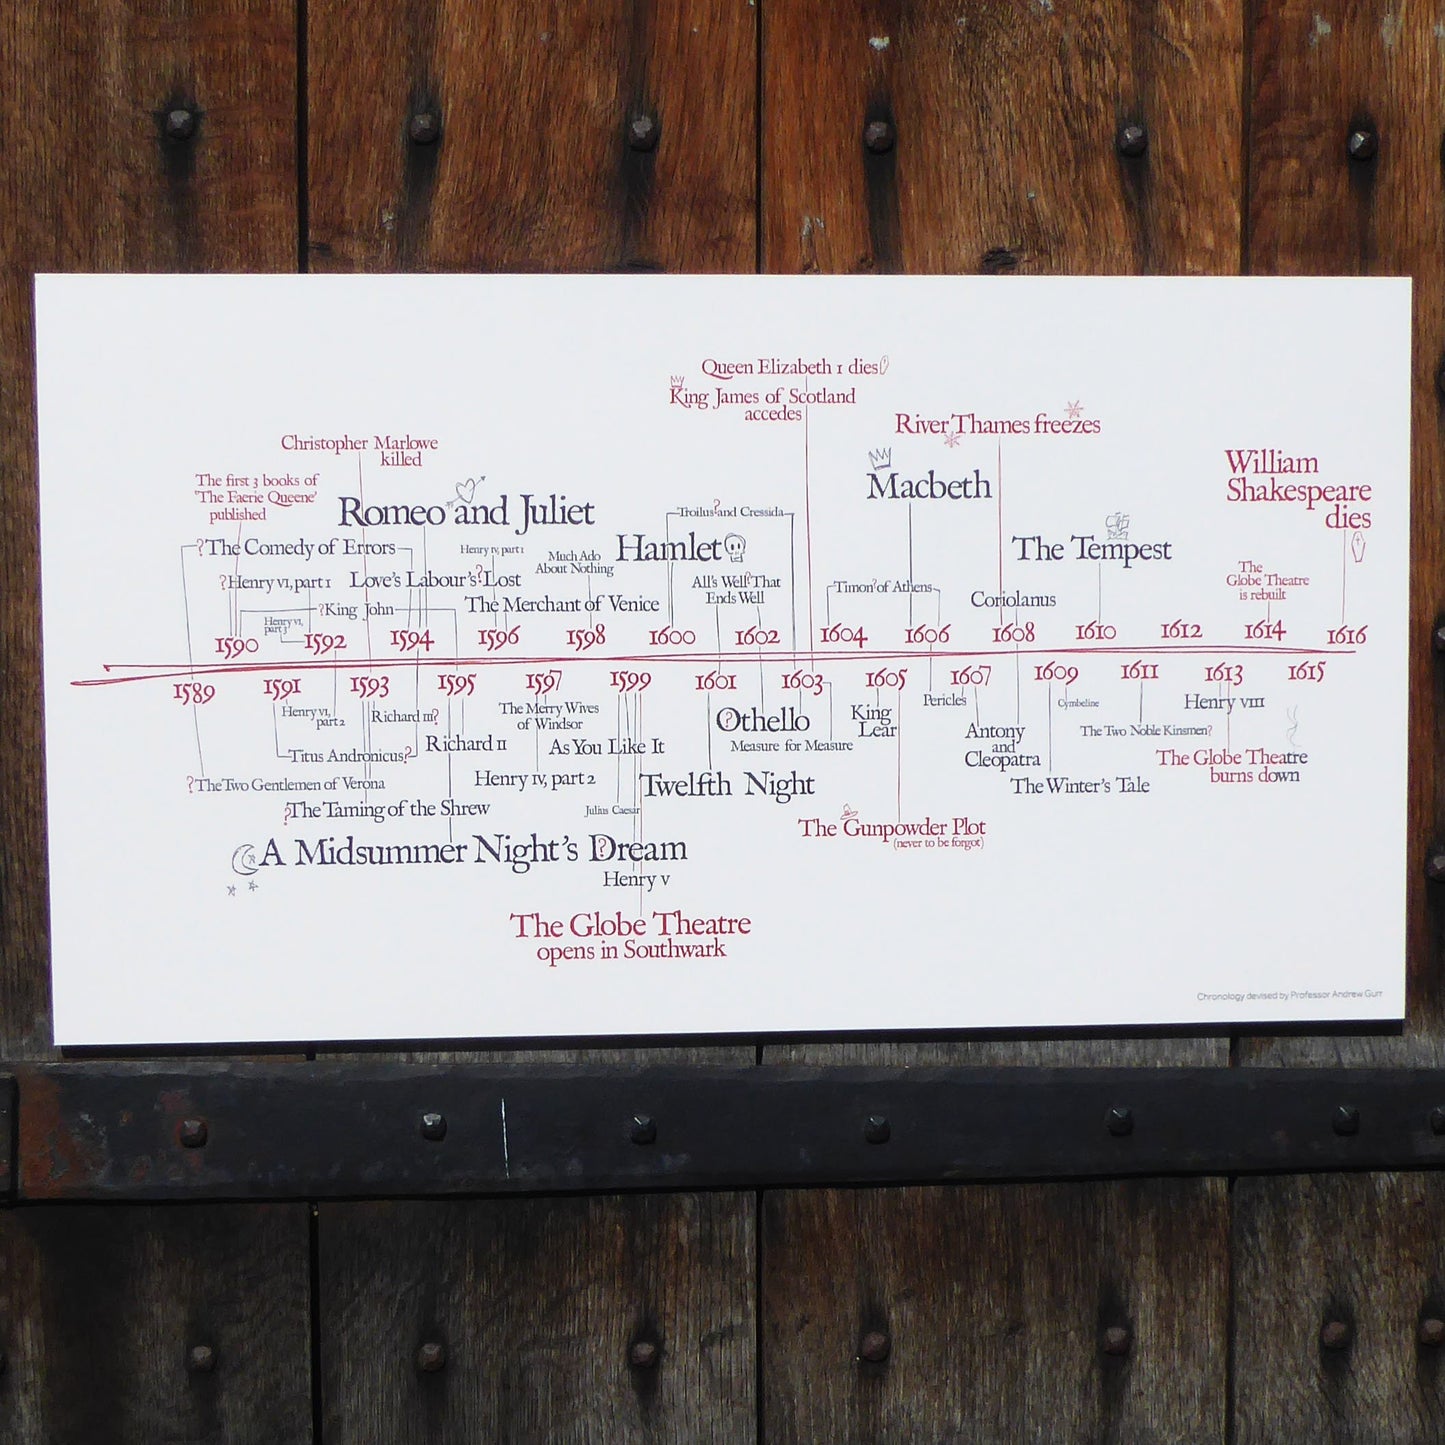 Queen Elizabeth I dies
King James of Scotland
accedes
River Thames freezes
Christopher Marlowe
killed
The first 3 books of
'The Faerie Queene'
published
Romeo and Juliet
Macbeth
William
Shakespeare
dies
?The Comedy of Errors
Henry IV, part 1
Much Ado
About Nothing
Hamlet
Troilus?and Cressida
The Tempest
?Henry VI, part 1
Love's Labour's?Lost
All's Well?That
Ends Well
Timon?of Athens
The
Globe Theatre
is rebuilt
Henry VI,
part 3
?King John
The Merchant of Venice
Coriolanus
1590 1592 1594 1596 1598 1600 1602 1604 1606 1608 1610 1612 1614 1616
1589 1591 1593 1595 1597 1599 1601 1603 1605 1607 1609 1611 1613 1615
Henry VI,
part 2
Richard III?
The Merry Wives
of Windsor
Othello
?
King
Lear
Pericles
Cymbeline
Henry VIII
Titus Andronicus?
Richard II
As You Like It
Measure for Measure
Antony
and
Cleopatra
The Two Noble Kinsmen?
?The Two Gentlemen of Verona
Henry IV, part 2
Twelfth Night
The Winter's Tale
The Globe Theatre
burns down
?The Taming of the Shrew
Julius Caesar
The Gunpowder Plot
(never to be forgot)
A Midsummer Night's Dream
?
Henry V
The Globe Theatre
opens in Southwark
Chronology devised by Professor Andrew Gurr